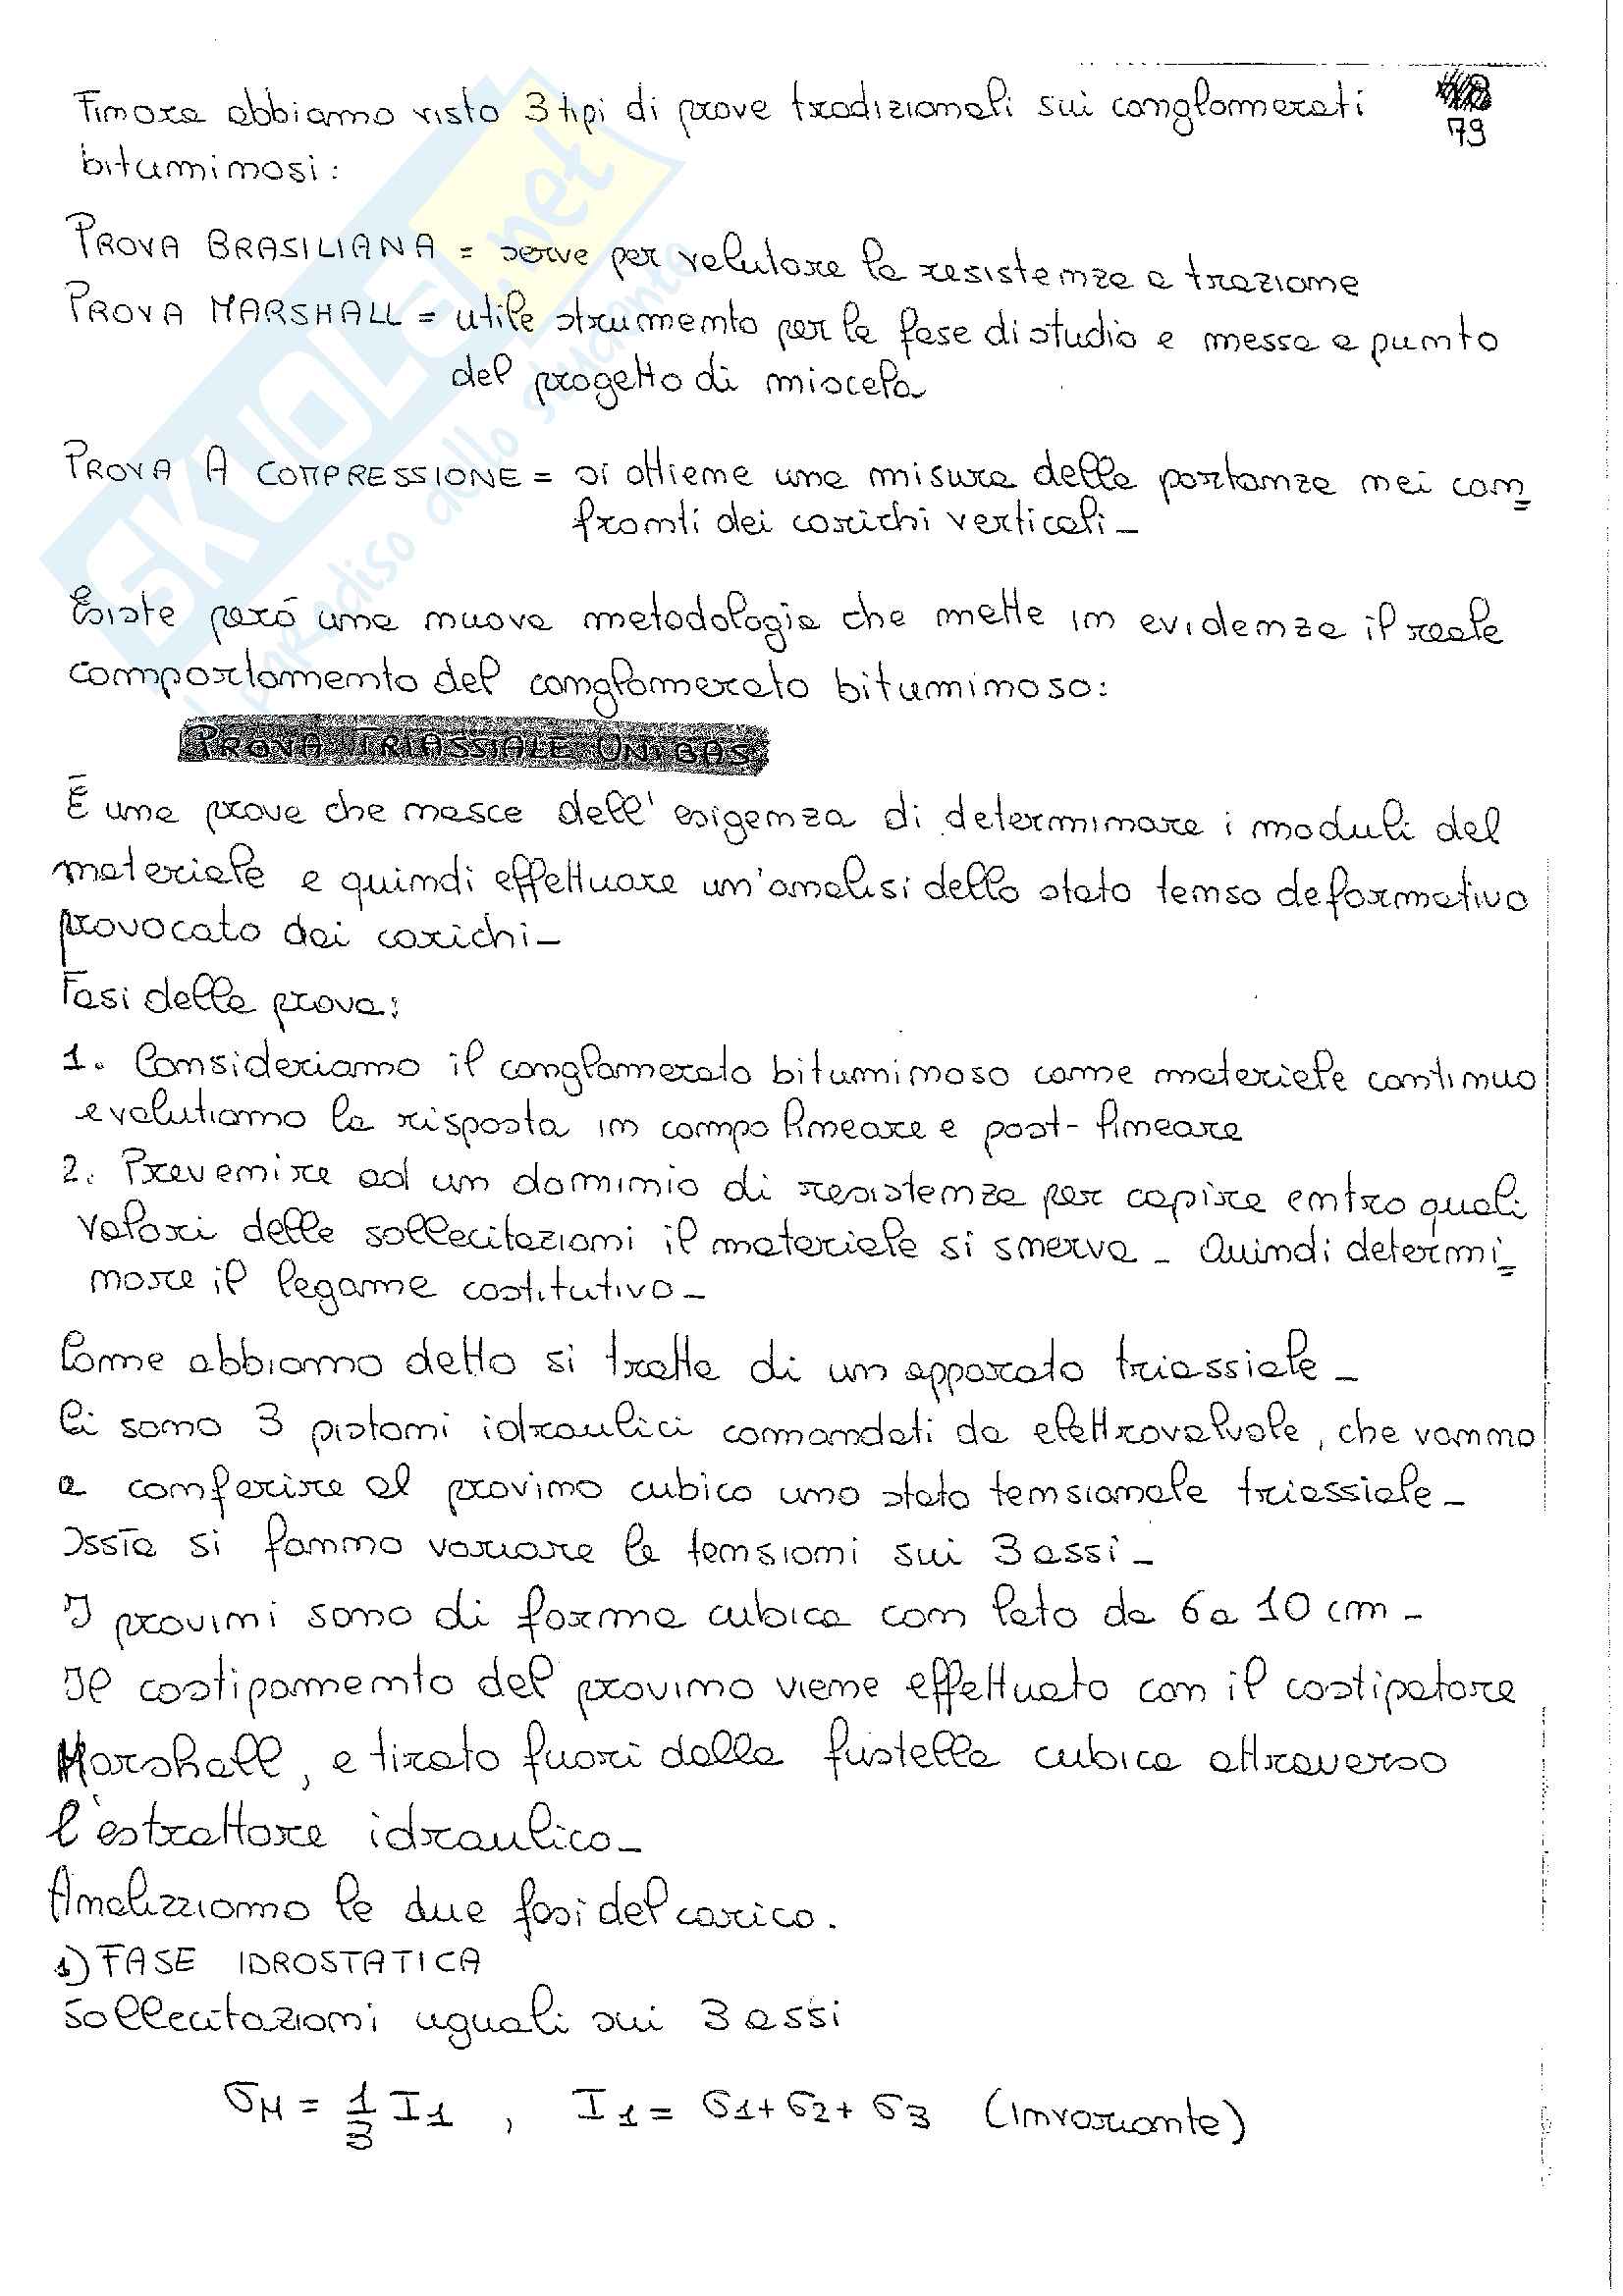 Finora abbiamo visto 3 tipi di prove tradizionali sui conglomerati
79
bituminosi:
PROVA BRASILIANA = serve per valutare la resistenza a trazione
PROVA MARSHALL = utile strumento per la fase di studio e messa a punto
del progetto di miscela
PROVA A COMPRESSIONE = si ottiene una misura della portanza nei con=
fronti dei carichi verticali_
Esiste però una nuova metodologia che mette in evidenza il reale
comportamento del conglomerato bituminoso:
PROVA TRIASSIALE UNIBAS
È una prova che nasce dell'esigenza di determinare i moduli del
materiale e quindi effettuare un'analisi dello stato tenso deformativo
provocato dai carichi_
Fasi della prova:
1. Consideriamo il conglomerato bituminoso come materiale continuo
e valutiamo la risposta in campo lineare e post-lineare
2. Prevenire ad un dominio di resistenza per capire entro quali
valori delle sollecitazioni il materiale si snerva_ Quindi determi=
nare il legame costitutivo_
Come abbiamo detto si tratta di un apparato triassiale_
Ci sono 3 pistoni idraulici comandati da elettrovalvole, che vanno
a conferire al provino cubico uno stato tensionale triassiale_
Ossia si fanno variare le tensioni sui 3 assi_
I provini sono di forma cubica con lato da 6 a 10 cm_
Il costipamento del provino viene effettuato con il costipatore
Marshall, e tirato fuori dalla fustella cubica attraverso
l'estrattore idraulico_
Analizziamo le due fasi del carico.
1) FASE IDROSTATICA
Sollecitazioni uguali sui 3 assi
σM = 1/3 I1 , I1 = σ1 + σ2 + σ3 (invariante)
SKUOLA.net
il paradiso dello studente